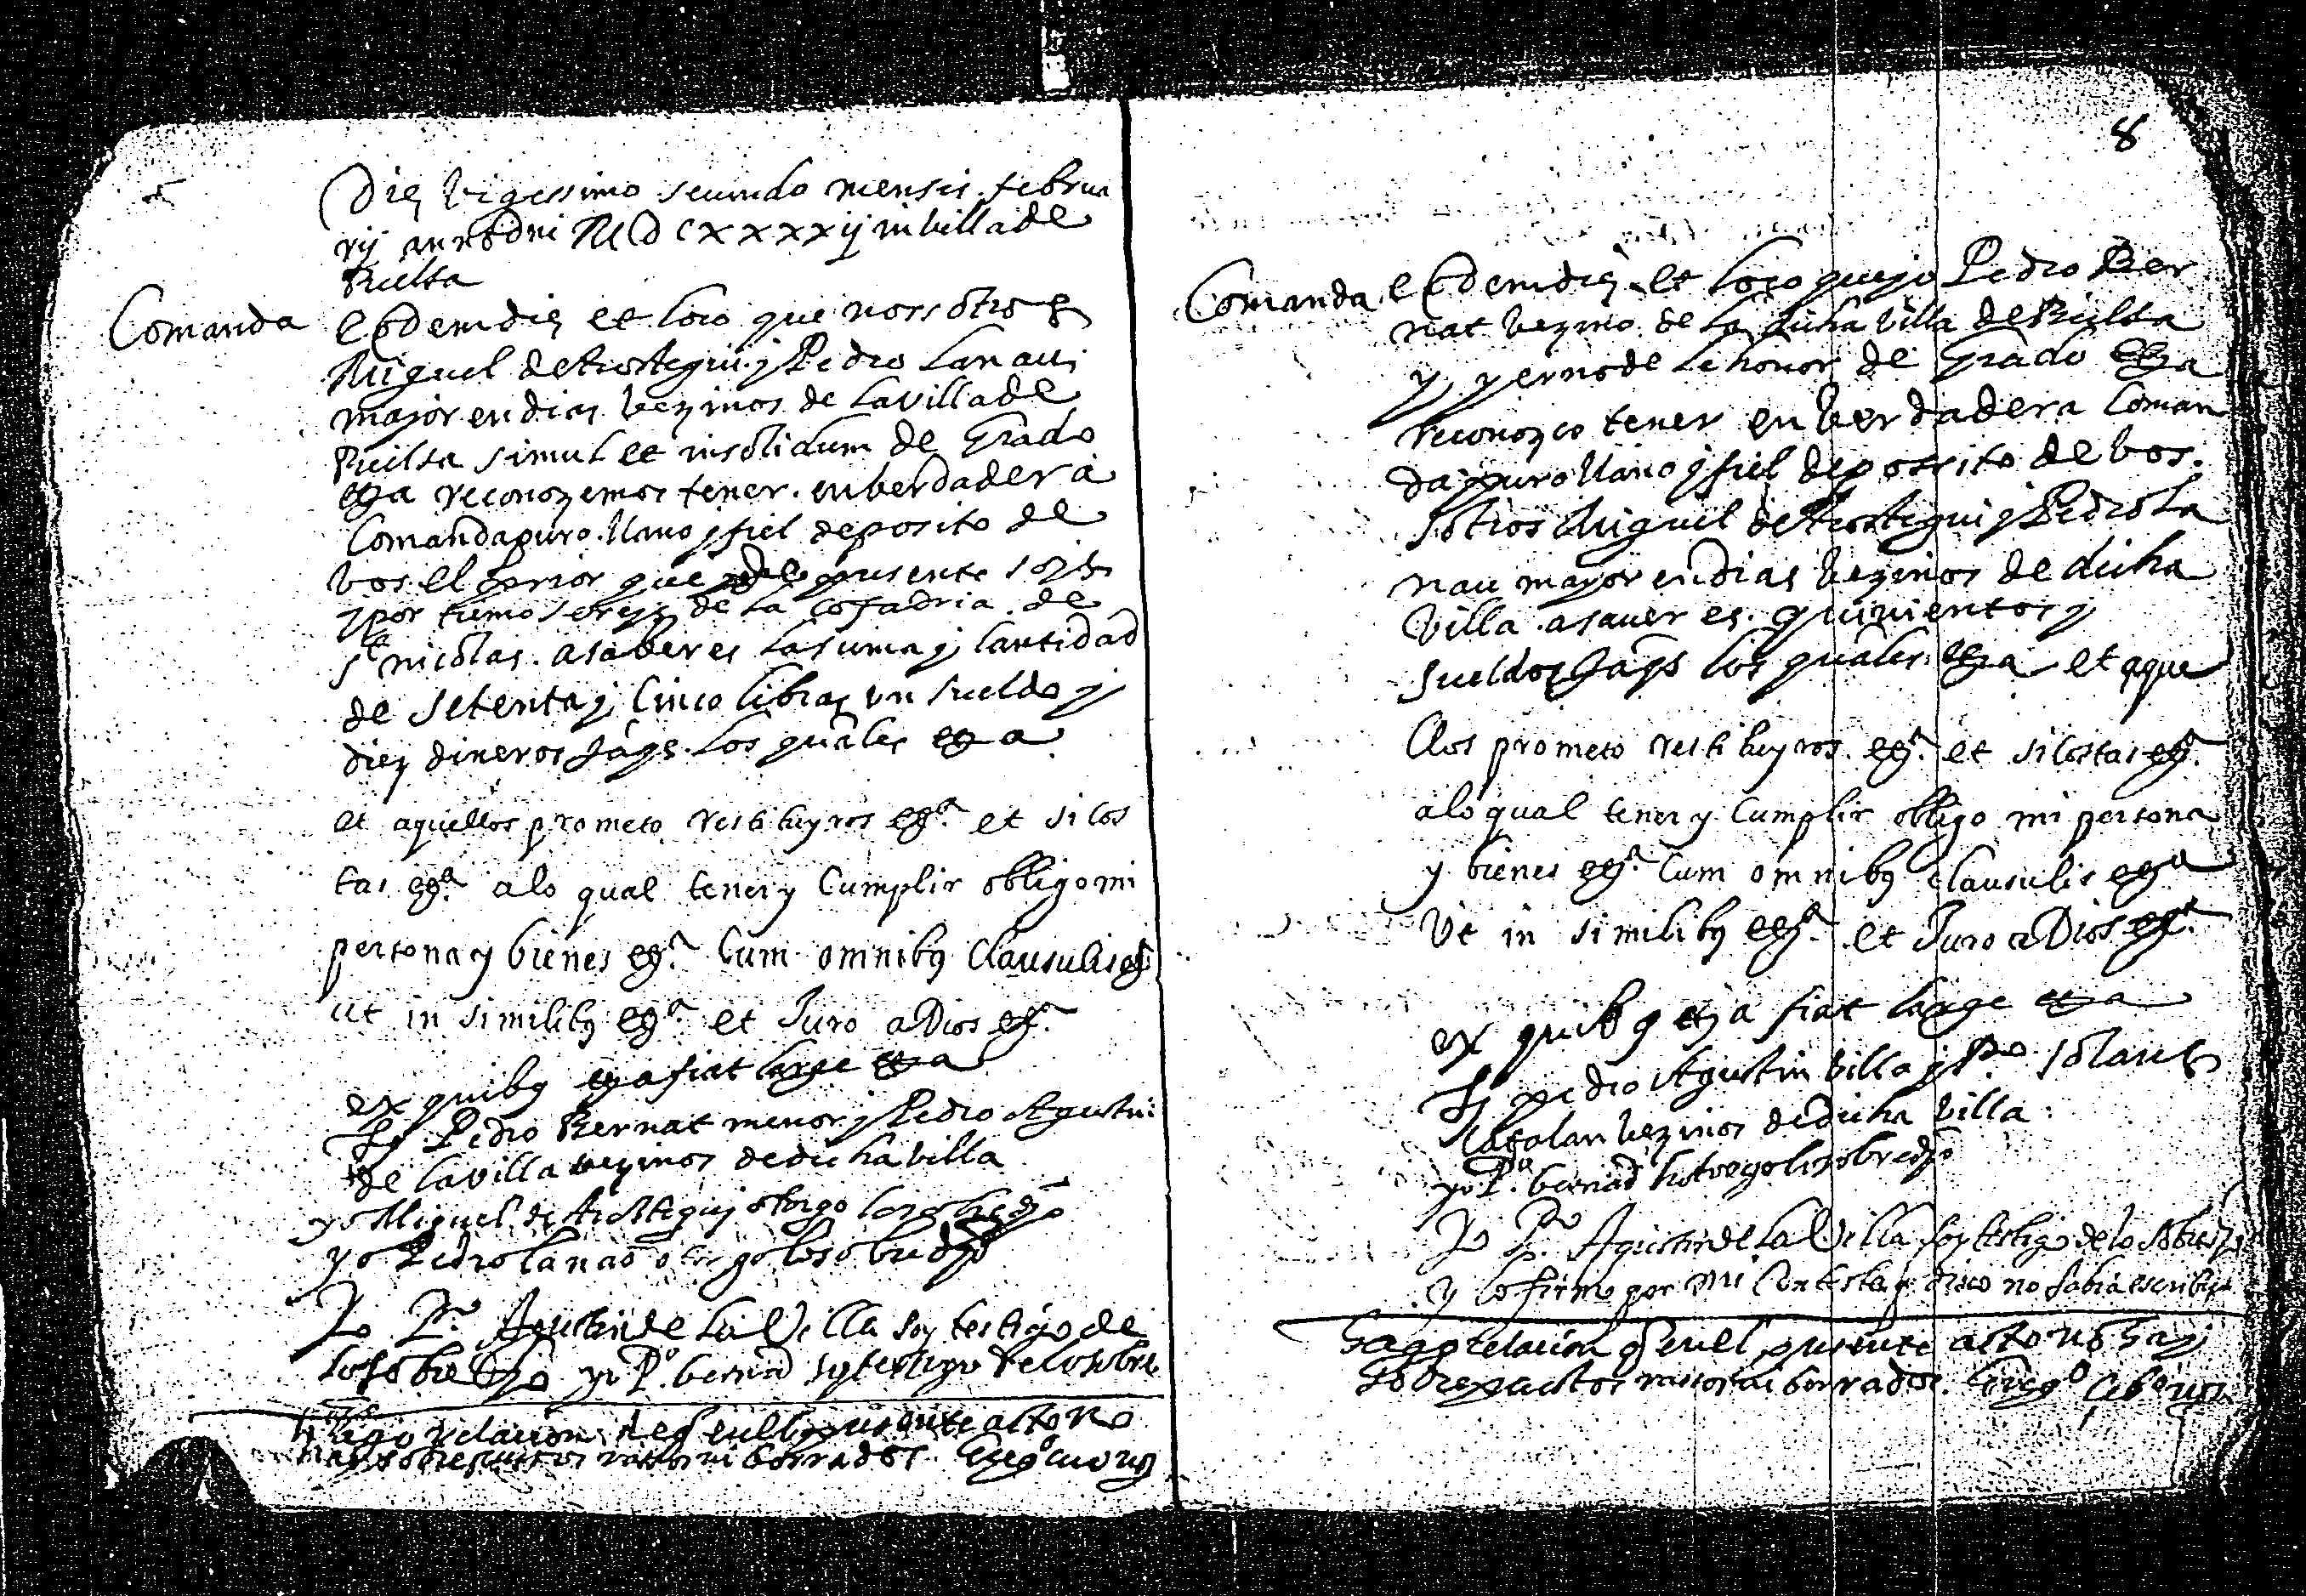 Die vigessimo secundo mensis februa
rij anno dni MDCXXXXij in villa de
Bielsa
Comanda
eodem die et loco que nossotros
Miguel de Arostegui y Pedro Lanau
mayor en dias vezinos de la villa de
Bielsa simul et insolidum de Grado
etza reconozemos tener en berdadera
Comanda puro llano y fiel deposito de
bos el prior que de presente sois
y por tiempo sereys de la cofadria de
sa nicolas asaber es la suma y cantidad
de setenta y cinco libras un sueldo y
diez dineros jaqs los quales etza
et aquellos prometo restituyros etza et si cos
tas etza a lo qual tener y cumplir obligo mi
persona y bienes etza Cum omnibq clausulis etza
ut in similibq etza et Juro a Dios etza
ex quibq etza fiat large etza
Ts Pedro Bernat menor y Pedro Agustin
de la villa vezinos de dicha villa
yo Miguel de Arostegui otorgo lo sobredjo
yo Pedro lanao otorgo lo sobredjo
Yo Po Agustin de La Villa soy testigo de
lo sobredjo yo Po bernad soy testigo de lo sobre
hago relacion que en el presente acto no
hay sobrepuestos rassos ni borrados
8
Comanda
eodem die et loco que yo Pedro Ber
nat vezino de la dicha villa de Bielsa
y yerno de de Grado etza
reconozco tener en berdadera Coman
da puro llano y fiel depossito de bos
sotros Miguel de Arostegui y Pedro La
nau mayor en dias vezinos de dicha
villa asauer es quinientos y
sueldos jaqs los quales etza et aque
llos prometo restituyros etza et si costas etza
a lo qual tener y cumplir obligo mi persona
y bienes etza Cum omnibq clausulis etza
Ut in similibq etza et Juro a Dios etza
ex quibq etza fiat large etza
Ts pedro Agustin villa y Po Solans
Catalan vezinos de dicha villa
yo Po bernad hotorgo lo sobredjo
Yo Po Agustin de La Villa soy testigo de lo sobredjo
y lo firmo por mi Contestap dixo no sabia escribir
hago relacion q en el presente acto no hay
sobrepuestos rassos ni borrados